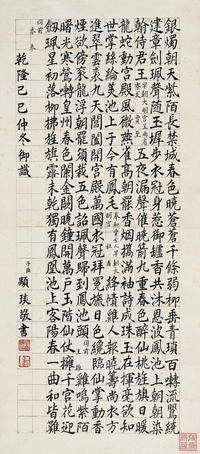 銀燭朝天紫陌長禁城春色曉蒼蒼千條弱柳垂青瑣百囀流鶯繞
建章劍珮聲隨玉墀步衣冠身惹御爐香共沐恩波鳳池上朝朝染
翰侍君王五夜漏聲催曉箭九重春色醉仙桃旌旗日暖
龍蛇動宮殿風微燕雀高朝罷香煙攜滿袖詩成珠玉在揮毫欲知
世掌絲綸美池上于今有鳳毛絳幘雞人報曉籌尚衣方
進翠雲裘九天閶闔開宮殿萬國衣冠拜冕旒日色纔臨仙掌動香
煙欲傍袞龍浮朝罷須裁五色詔珮聲歸到鳳池頭同前王維雞鳴紫陌
曙光寒鶯囀皇州春色闌金闕曉鐘開萬戶玉階仙仗擁千官花迎
劍珮星初落柳拂旌旗露未乾獨有鳳凰池上客陽春一曲和皆難
同前岑參
乾隆己巳仲冬御識
子臣顒琰敬書